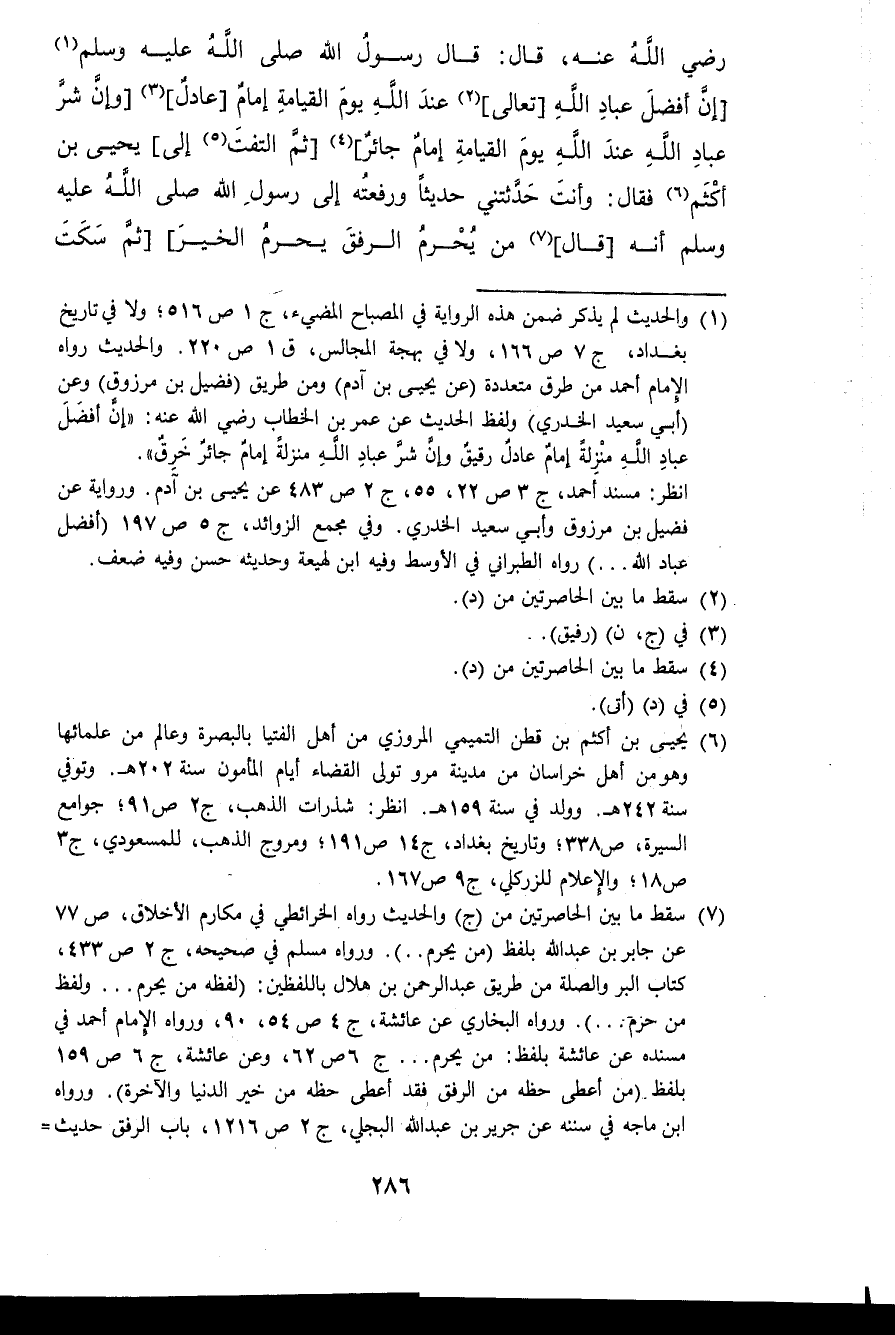 رضي اللَّهُ عنـه، قـال: قـال رسـولُ الله صلى اللَّهُ عليـه وسلم(١)
[إنَّ أفضلَ عبادِ اللَّـهِ [تعالى](٢) عندَ اللَّـهِ يومَ القيامةِ إمامٌ [عادلٌ](٣) [وإنَّ شرَّ
عبادِ اللَّـهِ عندَ اللَّـهِ يومَ القيامةِ إمامٌ جائرٌ](٤) [ثمَّ التفتَ(٥) إلى] يحيـى بن
أكْثَم(٦) فقال: وأنتَ حَدَّثتني حديثاً ورفعتُه إلى رسولِ الله صلى اللَّـهُ عليه
وسلم أنـه [قـال](٧) من يُحْـرمُ الـرفقَ يـحـرمُ الخـيـرَ] [ثمَّ سَكَتَ
(١) والحديث لم يذكر ضمن هذه الرواية في المصباح المضيء، ج ١ ص ٥١٦؛ ولا في تاريخ
بغـداد، ج ٧ ص ١٦٦، ولا في بهجة المجالس، ق ١ ص ٢٢٠. والحديث رواه
الإمام أحمد من طرق متعددة (عن يحيـى بن آدم) ومن طريق (فضيل بن مرزوق) وعن
(أبـي سعيد الخـدري) ولفظ الحديث عن عمر بن الخطاب رضي الله عنه: «إنَّ أفضَلَ
عبادِ اللَّـهِ منْزِلةً إمامٌ عادلٌ رقيقٌ وإنَّ شرَّ عبادِ اللَّـهِ منزلةً إمامٌ جائرٌ خَرِقٌ».
انظر: مسند أحمد، ج ٣ ص ٢٢، ٥٥، ج ٢ ص ٤٨٣ عن يحيـى بن آدم. ورواية عن
فضيل بن مرزوق وأبـي سعيد الخدري. وفي مجمع الزوائد، ج ٥ ص ١٩٧ (أفضل
عباد الله...) رواه الطبراني في الأوسط وفيه ابن لهيعة وحديثه حسن وفيه ضعف.
(٢) سقط ما بين الحاصرتين من (د).
(٣) في (ج، ن) (رفيق).
(٤) سقط ما بين الحاصرتين من (د).
(٥) في (د) (أتى).
(٦) يحيـى بن أكثم بن قطن التميمي المروزي من أهل الفتيا بالبصرة وعالم من علمائها
وهو من أهل خراسان من مدينة مرو تولى القضاء أيام المأمون سنة ٢٠٢هـ. وتوفي
سنة ٢٤٢هـ. وولد في سنة ١٥٩هـ. انظر: شذرات الذهب، ج٢ ص٩١؛ جوامع
السيرة، ص٣٣٨؛ وتاريخ بغداد، ج١٤ ص١٩١؛ ومروج الذهب، للمسعودي، ج٣
ص١٨؛ والإعلام للزركلي، ج٩ ص١٦٧.
(٧) سقط ما بين الحاصرتين من (ج) والحديث رواه الخرائطي في مكارم الأخلاق، ص ٧٧
عن جابر بن عبدالله بلفظ (من يحرم...). ورواه مسلم في صحيحه، ج ٢ ص ٤٣٣،
كتاب البر والصلة من طريق عبدالرحمن بن هلال باللفظين: (لفظه من يحرم... ولفظ
من حرم...). ورواه البخاري عن عائشة، ج ٤ ص ٥٤، ٩٠، ورواه الإمام أحمد في
مسنده عن عائشة بلفظ: من يحرم... ج ٦ ص ٦٢، وعن عائشة، ج ٦ ص ١٥٩
بلفظ (من أعطى حظه من الرفق فقد أعطى حظه من خير الدنيا والآخرة). ورواه
ابن ماجه في سننه عن جرير بن عبدالله البجلي، ج ٢ ص ١٢١٦، باب الرفق حديث=
٢٨٦